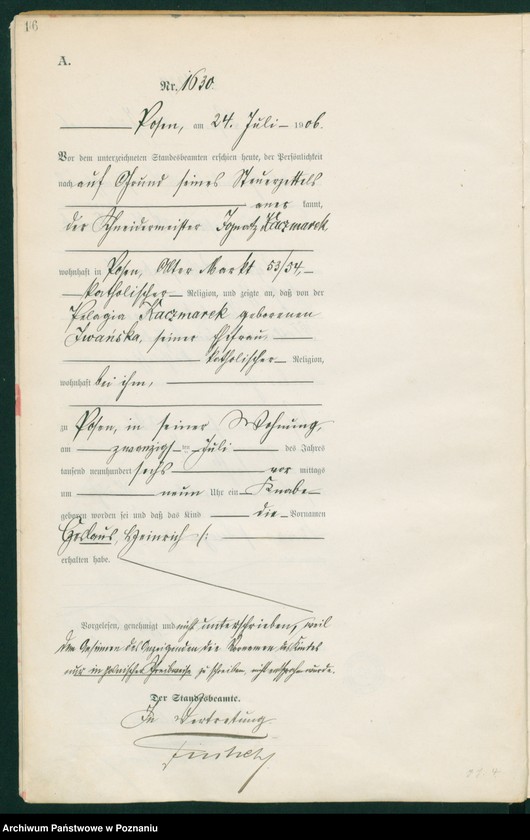 16
A.
Nr. 1630.
Posen, am 24. Juli 1906.
Vor dem unterzeichneten Standesbeamten erschien heute, der Persönlichkeit
nach auf Grund seines Steuerzettels
aner kannt,
der Schneidermeister Ignatz Kaczmarek
wohnhaft in Posen, Alter Markt 53/54,
katholischer Religion, und zeigte an, daß von der
Pelagia Kaczmarek geborenen
Iwańska, seiner Ehefrau,
katholischer Religion,
wohnhaft bei ihm,
zu Posen, in seiner Wohnung,
am zwanzigsten Juli des Jahres
tausend neunhundert sechs vor mittags
um neun Uhr ein Knabe
geboren worden sei und daß das Kind die Vornamen
Heinrich
erhalten habe.
Vorgelesen, genehmigt und nicht unterschrieben, weil
dem des Anzeigenden, die Vornamen des Kindes
nur in polnischer Schreibweise zu schreiben, nicht entsprochen wurde.
Der Standesbeamte.
In Vertretung
Archiwum Państwowe w Poznaniu